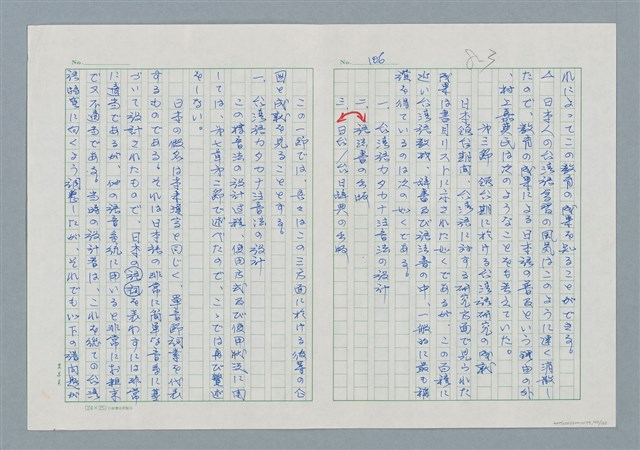 No. 106
8-3
れによってこの教育の成果を知ることができる。
今、日本人の台湾語学習の風気はこのように速く消散し
たので、教育の成果による日本語の普及という理由の外
、村上嘉英氏は次のようなことをも考えていた。
第三節 領台期に於ける台湾語研究の成就
日本領台期間、台湾語に対する研究方面で見られた
成果は書目リストに示された如くであるが、この百種に
近い台湾語教材、辞書及び語法書の中、一般的に最も評
価を得ているのは次の如くである。
一、台湾語カタカナ注音法の設計
二、語法書の出版
三、日台/台日辞典の出版
No.
この一節では、我々はこの三方面に於ける彼等の企
図と成就を見ることとする。
一、台湾語カタカナ注音法の設計
この標音法の設計過程、使用方式及び使用状況に関
しては、第七章第二節で述べたので、ここでは再び贅述
をしない。
日本の仮名は子末漢字と同じく、単音節詞素を代表
するものである。それは日本語の非常に簡単な音系に基
づいて設計されたもので、日本の語詞を表わすには非常
に適当であるが、他の語音系統に用いると非常にお粗末
で又不適当である。当時の設計者は、これを総ての台湾
語音に向くよう調整したが、それでも以下の諸問題が